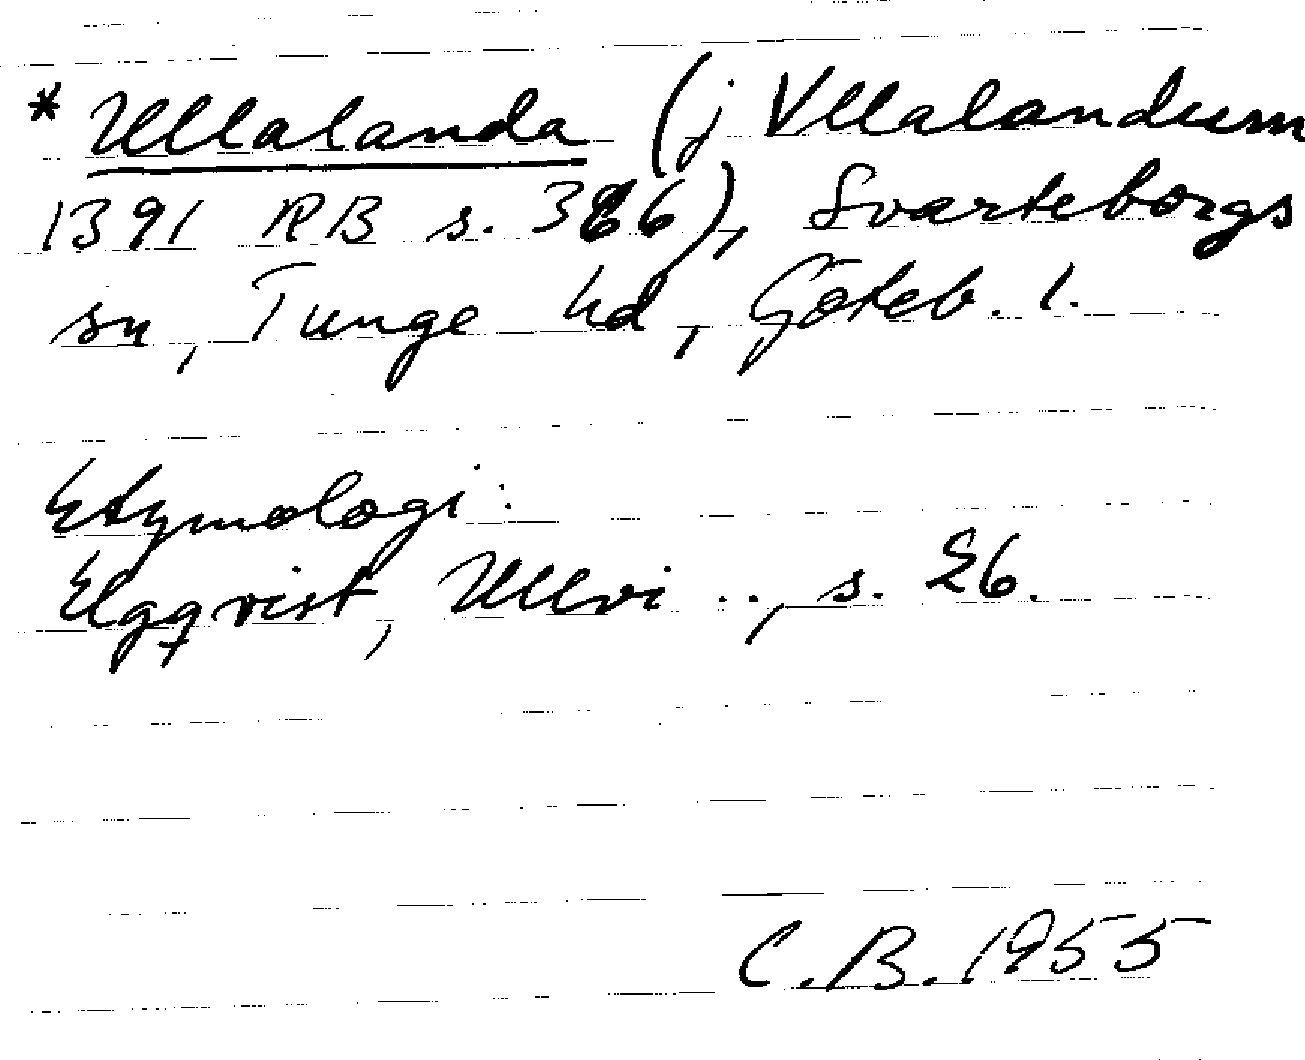 * Ullalanda (j Vllalandum
1391 RB s. 366), Svarteborgs
sn, Tunge hd, Göteb. l.
Etymologi:
Elgqvist, Ullvi .., s. 26.
C.B. 1955